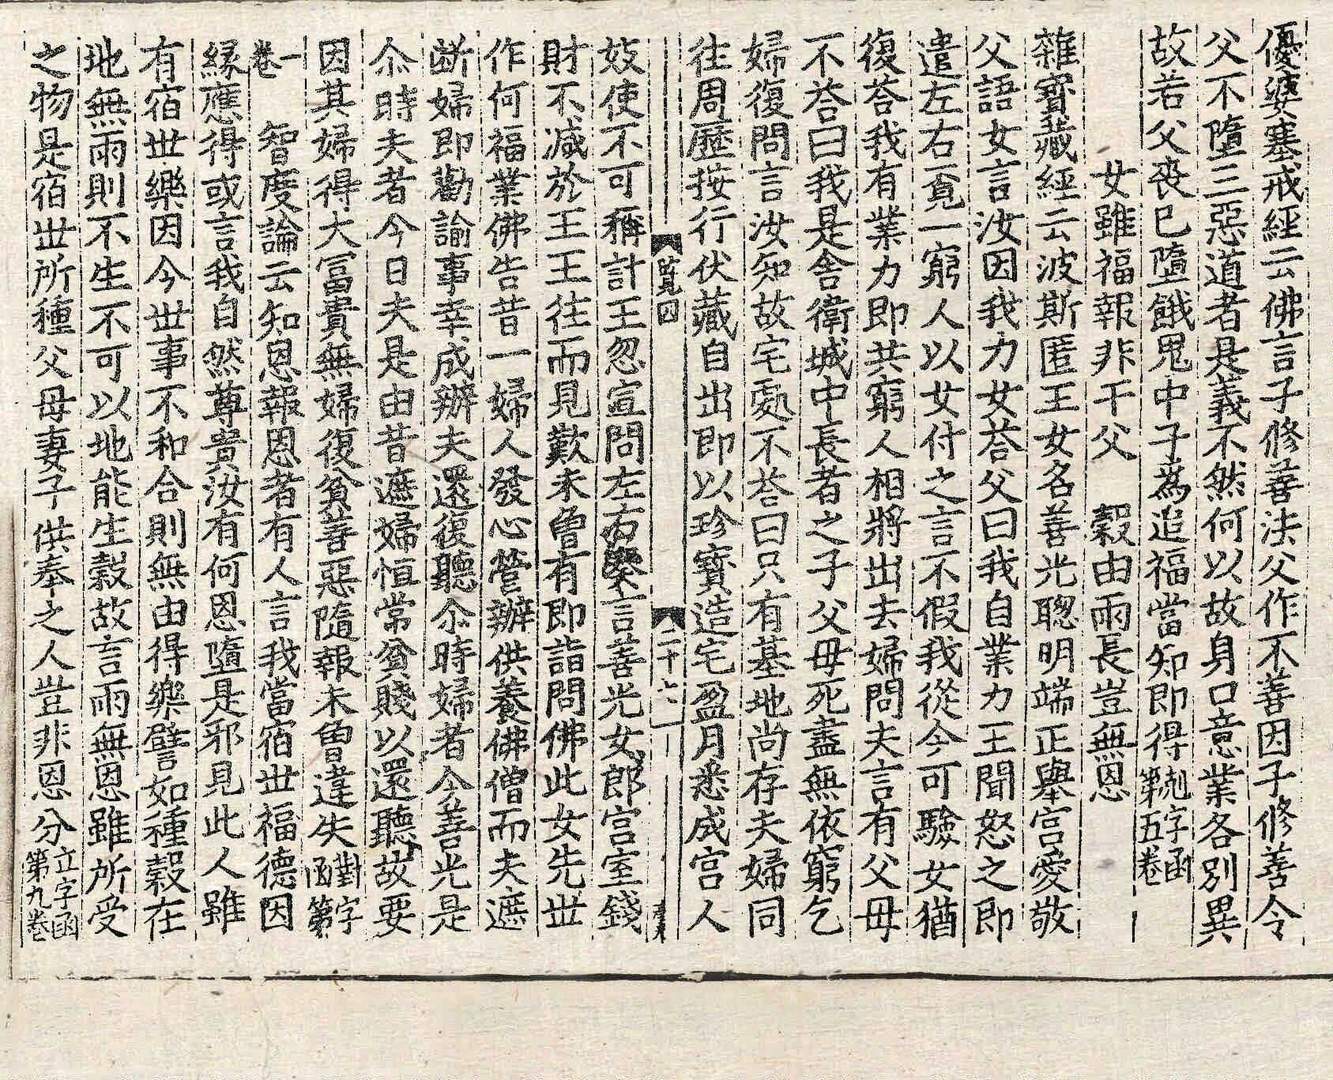 優婆塞戒經云佛言子修善法父作不善因子修善令
父不墮三惡道者是義不然何以故身口意業各別異
故若父喪已墮餓鬼中子為追福當知即得尅字函第五卷
女雖福報非干父　穀由雨長豈無恩
雜寶藏經云波斯匿王女名善光聰明端正舉宫愛敬
父語女言汝因我力女荅父曰我自業力王聞怒之即
遣左右覓一窮人以女付之言不假我從今可驗女猶
復荅我有業力即共窮人相將出去婦問夫言有父母
不荅曰我是舎衛城中長者之子父母死盡無依窮乞
婦復問言汝知故宅處不荅曰只有基地尚存夫婦同
往周歷按行伏藏自出即以珍寶造宅盈月悉成宫人
覧四　二十七
妓使不可稱計王忽宣問左右答言善光女郎宫室錢
財不减於王王往而見歎未曾有即詣問佛此女先世
作何福業佛告昔一婦人發心營辦供養佛僧而夫遮
断婦即勸諭事幸成辦夫還復聽尒時婦者今善光是
尒時夫者今日夫是由昔遮婦恒常貧賤以還聽故要
因其婦得大冨貴無婦復貧善惡隨報未曾違失對字函第
一卷　智度論云知恩報恩者有人言我當宿世福德因
緣應得或言我自然尊貴汝有何恩墮是邪見此人雖
有宿世樂因今世事不和合則無由得樂譬如種穀在
地無雨則不生不可以地能生穀故言雨無恩雖所受
之物是宿世所種父母妻子供奉之人豈非恩分立字函第九卷